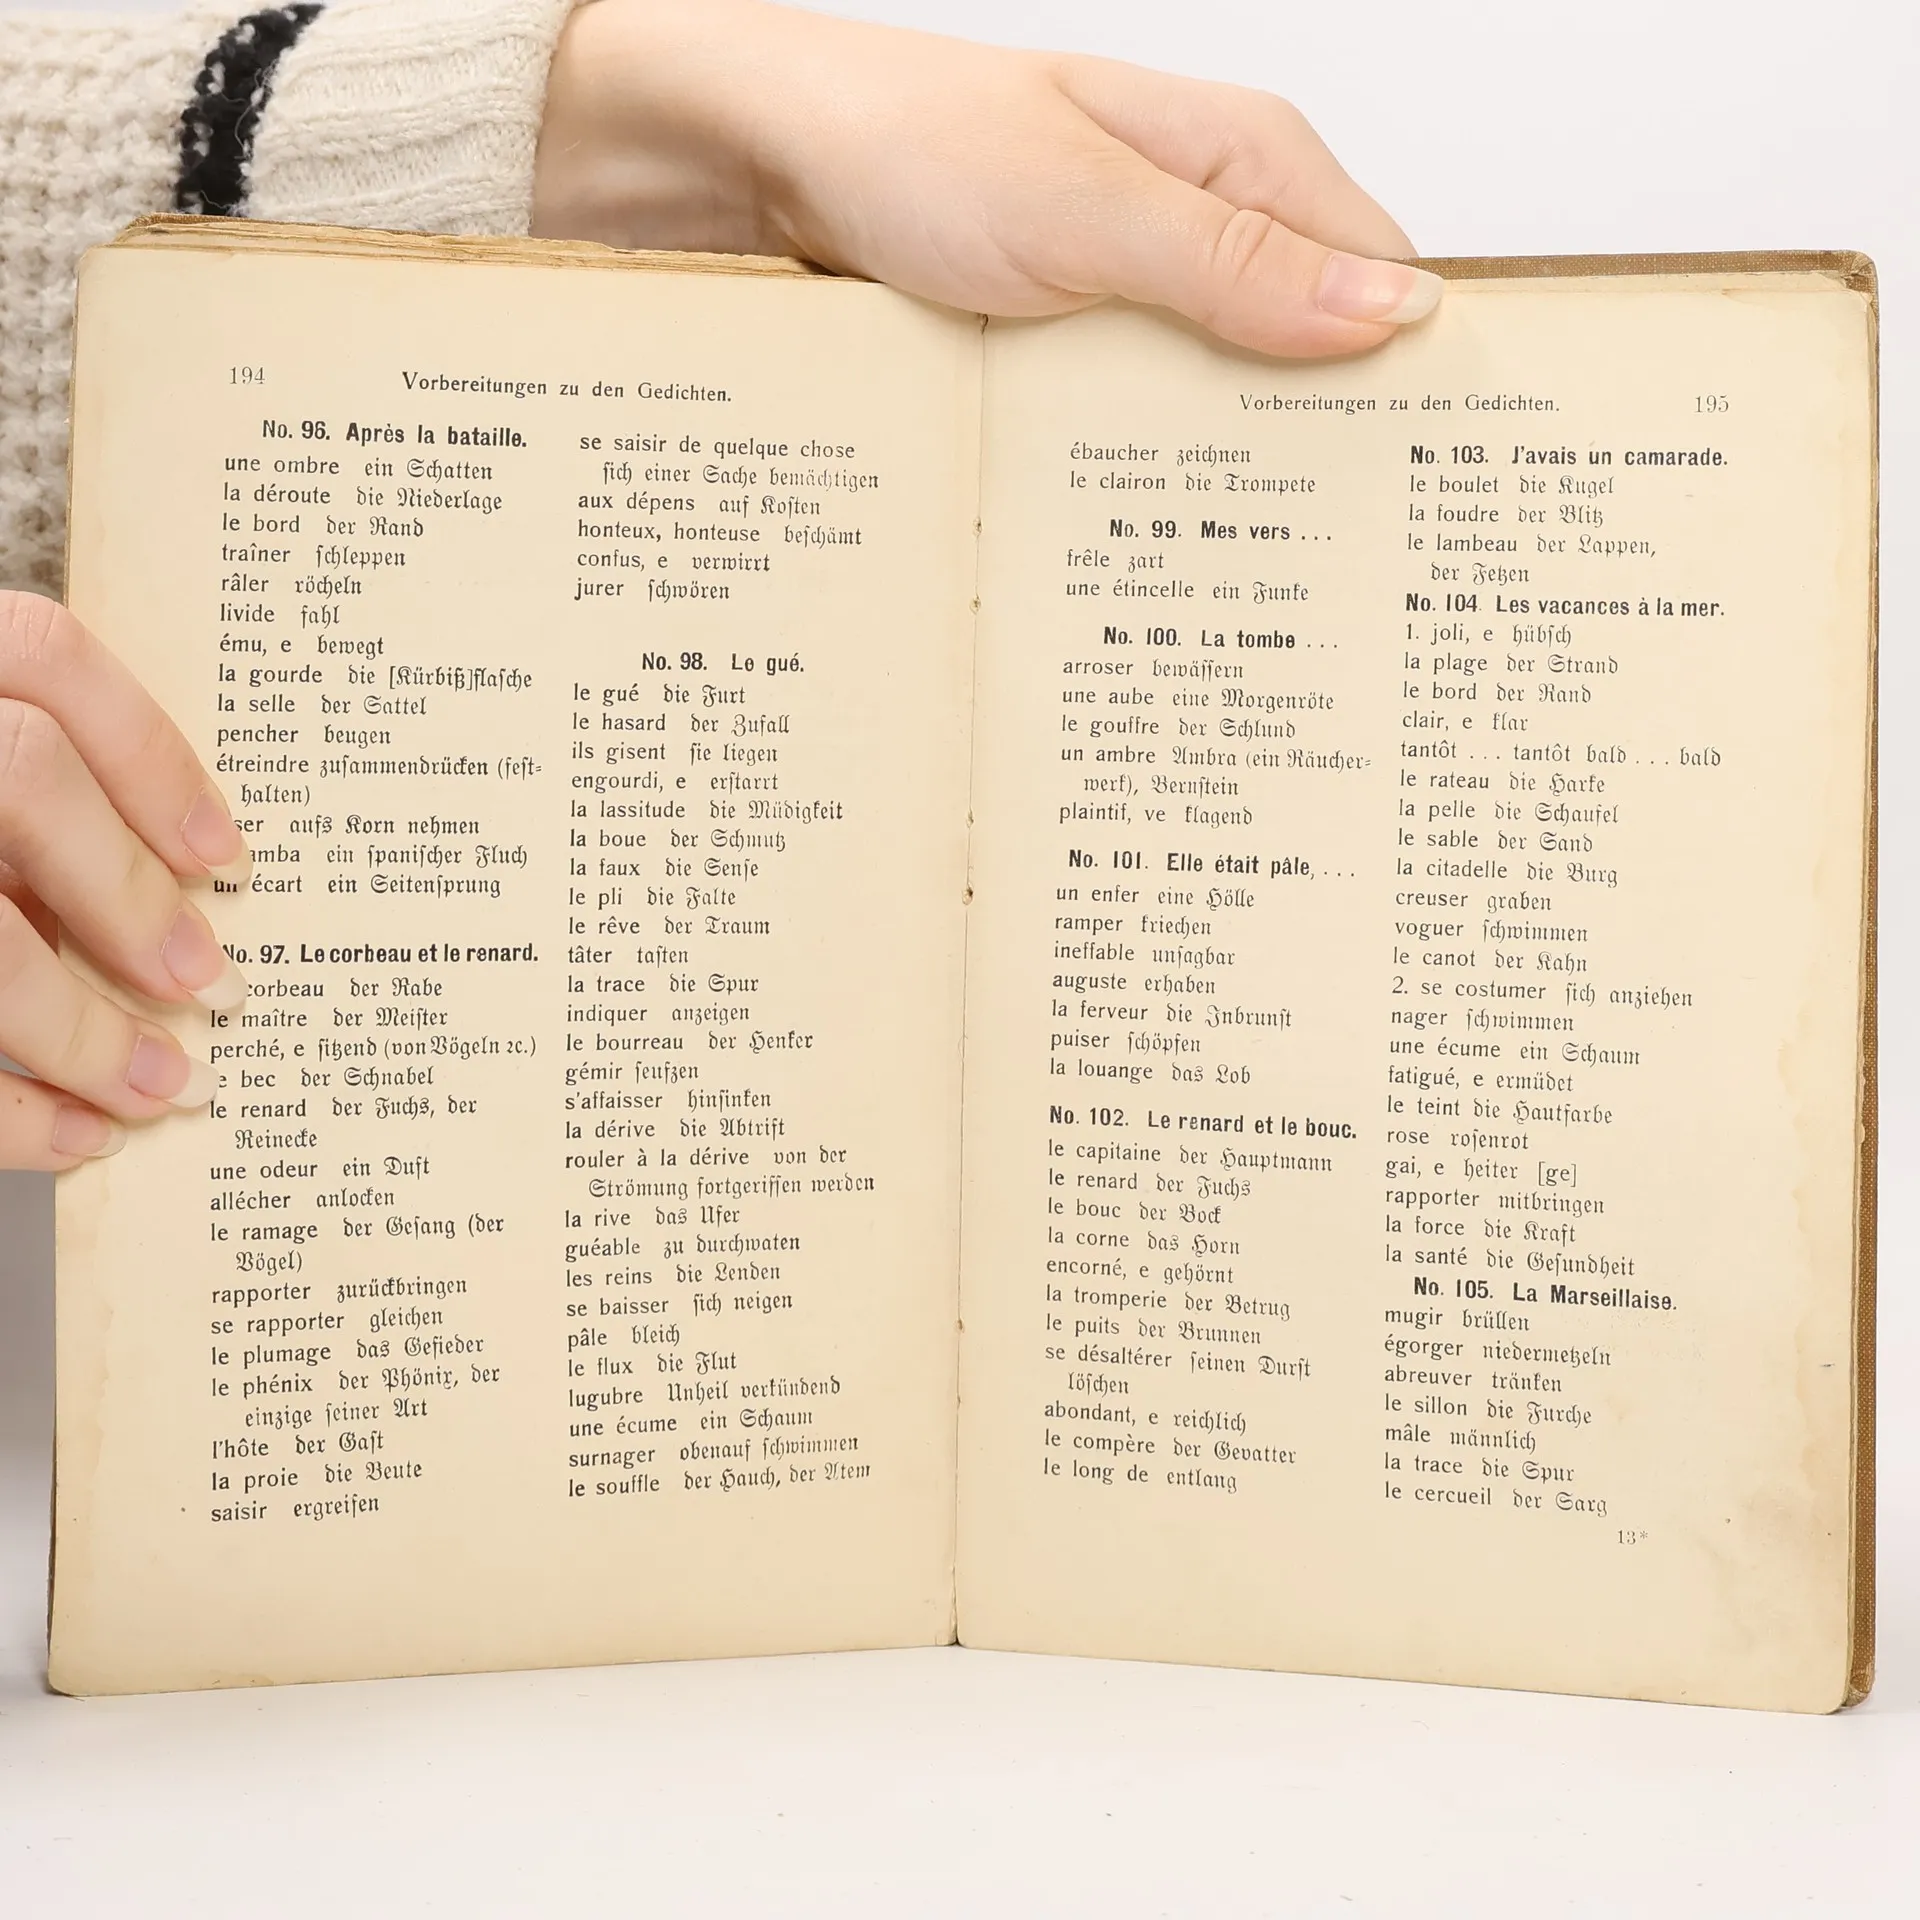 194
Vorbereitungen zu den Gedichten.
No. 96. Après la bataille.
une ombre ein Schatten
la déroute die Niederlage
le bord der Rand
traîner schleppen
râler röcheln
livide fahl
ému, e bewegt
la gourde die [Kürbiß]flasche
la selle der Sattel
pencher beugen
étreindre zusammendrücken (fest-
halten)
ser aufs Korn nehmen
amba ein spanischer Fluch
un écart ein Seitensprung
No. 97. Le corbeau et le renard.
corbeau der Rabe
le maître der Meister
perché, e sitzend (von Vögeln ꝛc.)
e bec der Schnabel
le renard der Fuchs, der
Reinecke
une odeur ein Duft
allécher anlocken
le ramage der Gesang (der
Vögel)
rapporter zurückbringen
se rapporter gleichen
le plumage das Gefieder
le phénix der Phönix, der
einzige seiner Art
l'hôte der Gast
la proie die Beute
saisir ergreifen
se saisir de quelque chose
sich einer Sache bemächtigen
aux dépens auf Kosten
honteux, honteuse beschämt
confus, e verwirrt
jurer schwören
No. 98. Le gué.
le gué die Furt
le hasard der Zufall
ils gisent sie liegen
engourdi, e erstarrt
la lassitude die Müdigkeit
la boue der Schmutz
la faux die Sense
le pli die Falte
le rêve der Traum
tâter tasten
la trace die Spur
indiquer anzeigen
le bourreau der Henker
gémir seufzen
s'affaisser hinsinken
la dérive die Abtrift
rouler à la dérive von der
Strömung fortgerissen werden
la rive das Ufer
guéable zu durchwaten
les reins die Lenden
se baisser sich neigen
pâle bleich
le flux die Flut
lugubre Unheil verkündend
une écume ein Schaum
surnager obenauf schwimmen
le souffle der Hauch, der Atem
Vorbereitungen zu den Gedichten.
195
ébaucher zeichnen
le clairon die Trompete
No. 99. Mes vers ...
frêle zart
une étincelle ein Funke
No. 100. La tombe ...
arroser bewässern
une aube eine Morgenröte
le gouffre der Schlund
un ambre Ambra (ein Räucher-
werk), Bernstein
plaintif, ve klagend
No. 101. Elle était pâle, ...
un enfer eine Hölle
ramper kriechen
ineffable unsagbar
auguste erhaben
la ferveur die Inbrunst
puiser schöpfen
la louange das Lob
No. 102. Le renard et le bouc.
le capitaine der Hauptmann
le renard der Fuchs
le bouc der Bock
la corne das Horn
encorné, e gehörnt
la tromperie der Betrug
le puits der Brunnen
se désaltérer seinen Durst
löschen
abondant, e reichlich
le compère der Gevatter
le long de entlang
No. 103. J'avais un camarade.
le boulet die Kugel
la foudre der Blitz
le lambeau der Lappen,
der Fetzen
No. 104. Les vacances à la mer.
1. joli, e hübsch
la plage der Strand
le bord der Rand
clair, e klar
tantôt ... tantôt bald ... bald
le rateau die Harke
la pelle die Schaufel
le sable der Sand
la citadelle die Burg
creuser graben
voguer schwimmen
le canot der Kahn
2. se costumer sich anziehen
nager schwimmen
une écume ein Schaum
fatigué, e ermüdet
le teint die Hautfarbe
rose rosenrot
gai, e heiter [ge]
rapporter mitbringen
la force die Kraft
la santé die Gesundheit
No. 105. La Marseillaise.
mugir brüllen
égorger niedermetzeln
abreuver tränken
le sillon die Furche
mâle männlich
la trace die Spur
le cercueil der Sarg
13*